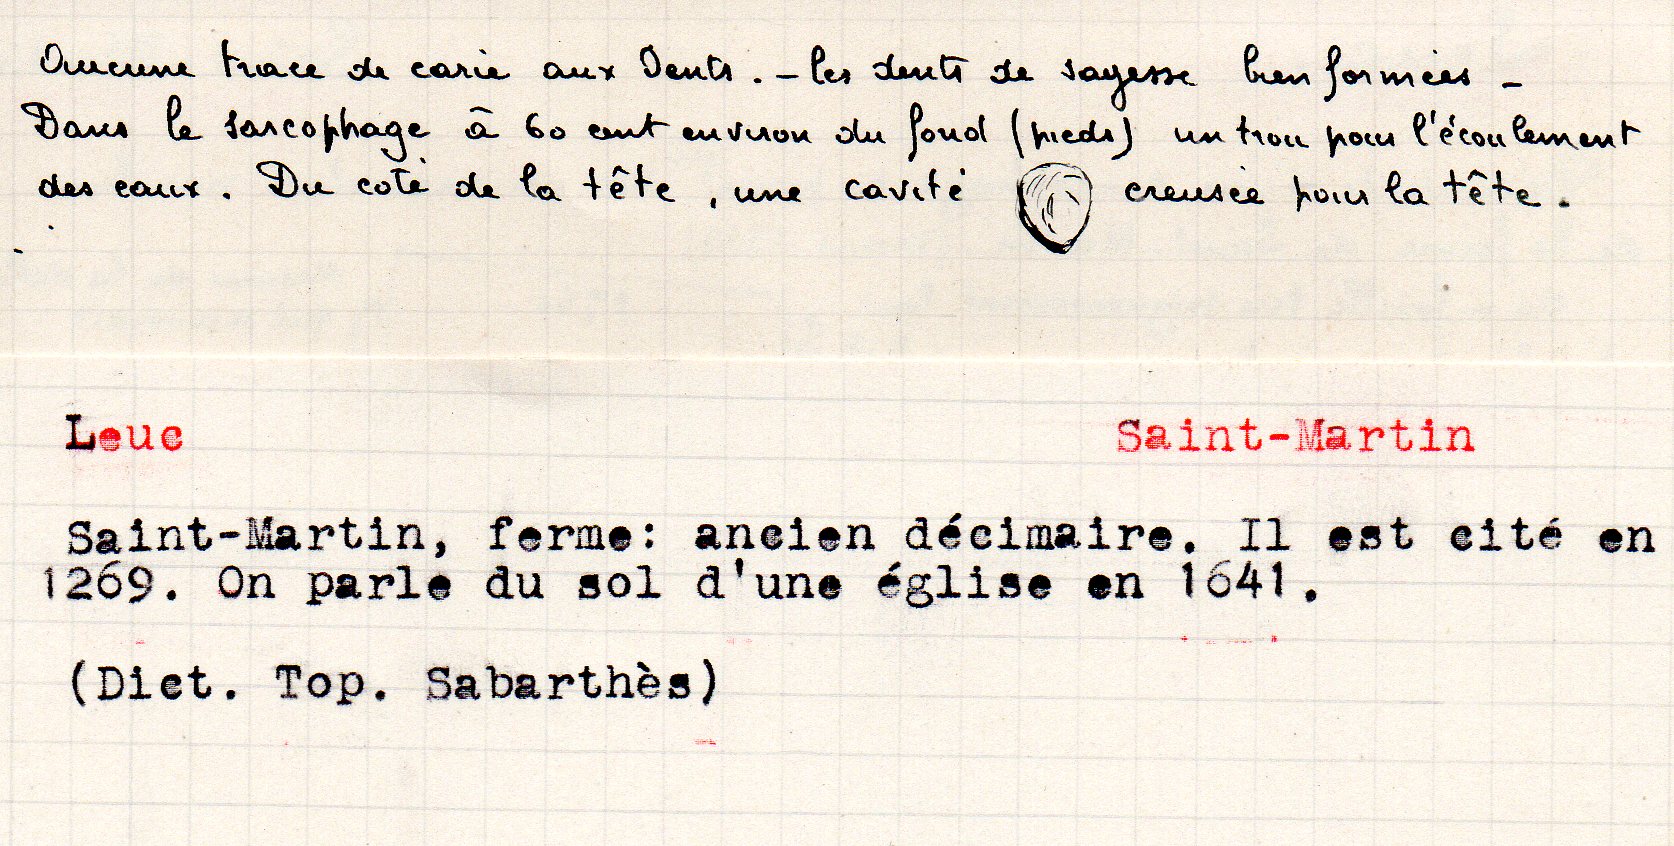 Aucune trace de carie aux Dents. - les dents de sagesse bien formées -
Dans le sarcophage à 60 cent environ du fond (pieds) un trou pour l'écoulement
des eaux. Du coté de la tête, une cavité creusée pour la tête.
Leuc Saint-Martin
Saint-Martin, ferme: ancien décimaire. Il est cité en
1269. On parle du sol d'une église en 1641.
(Dict. Top. Sabarthès)